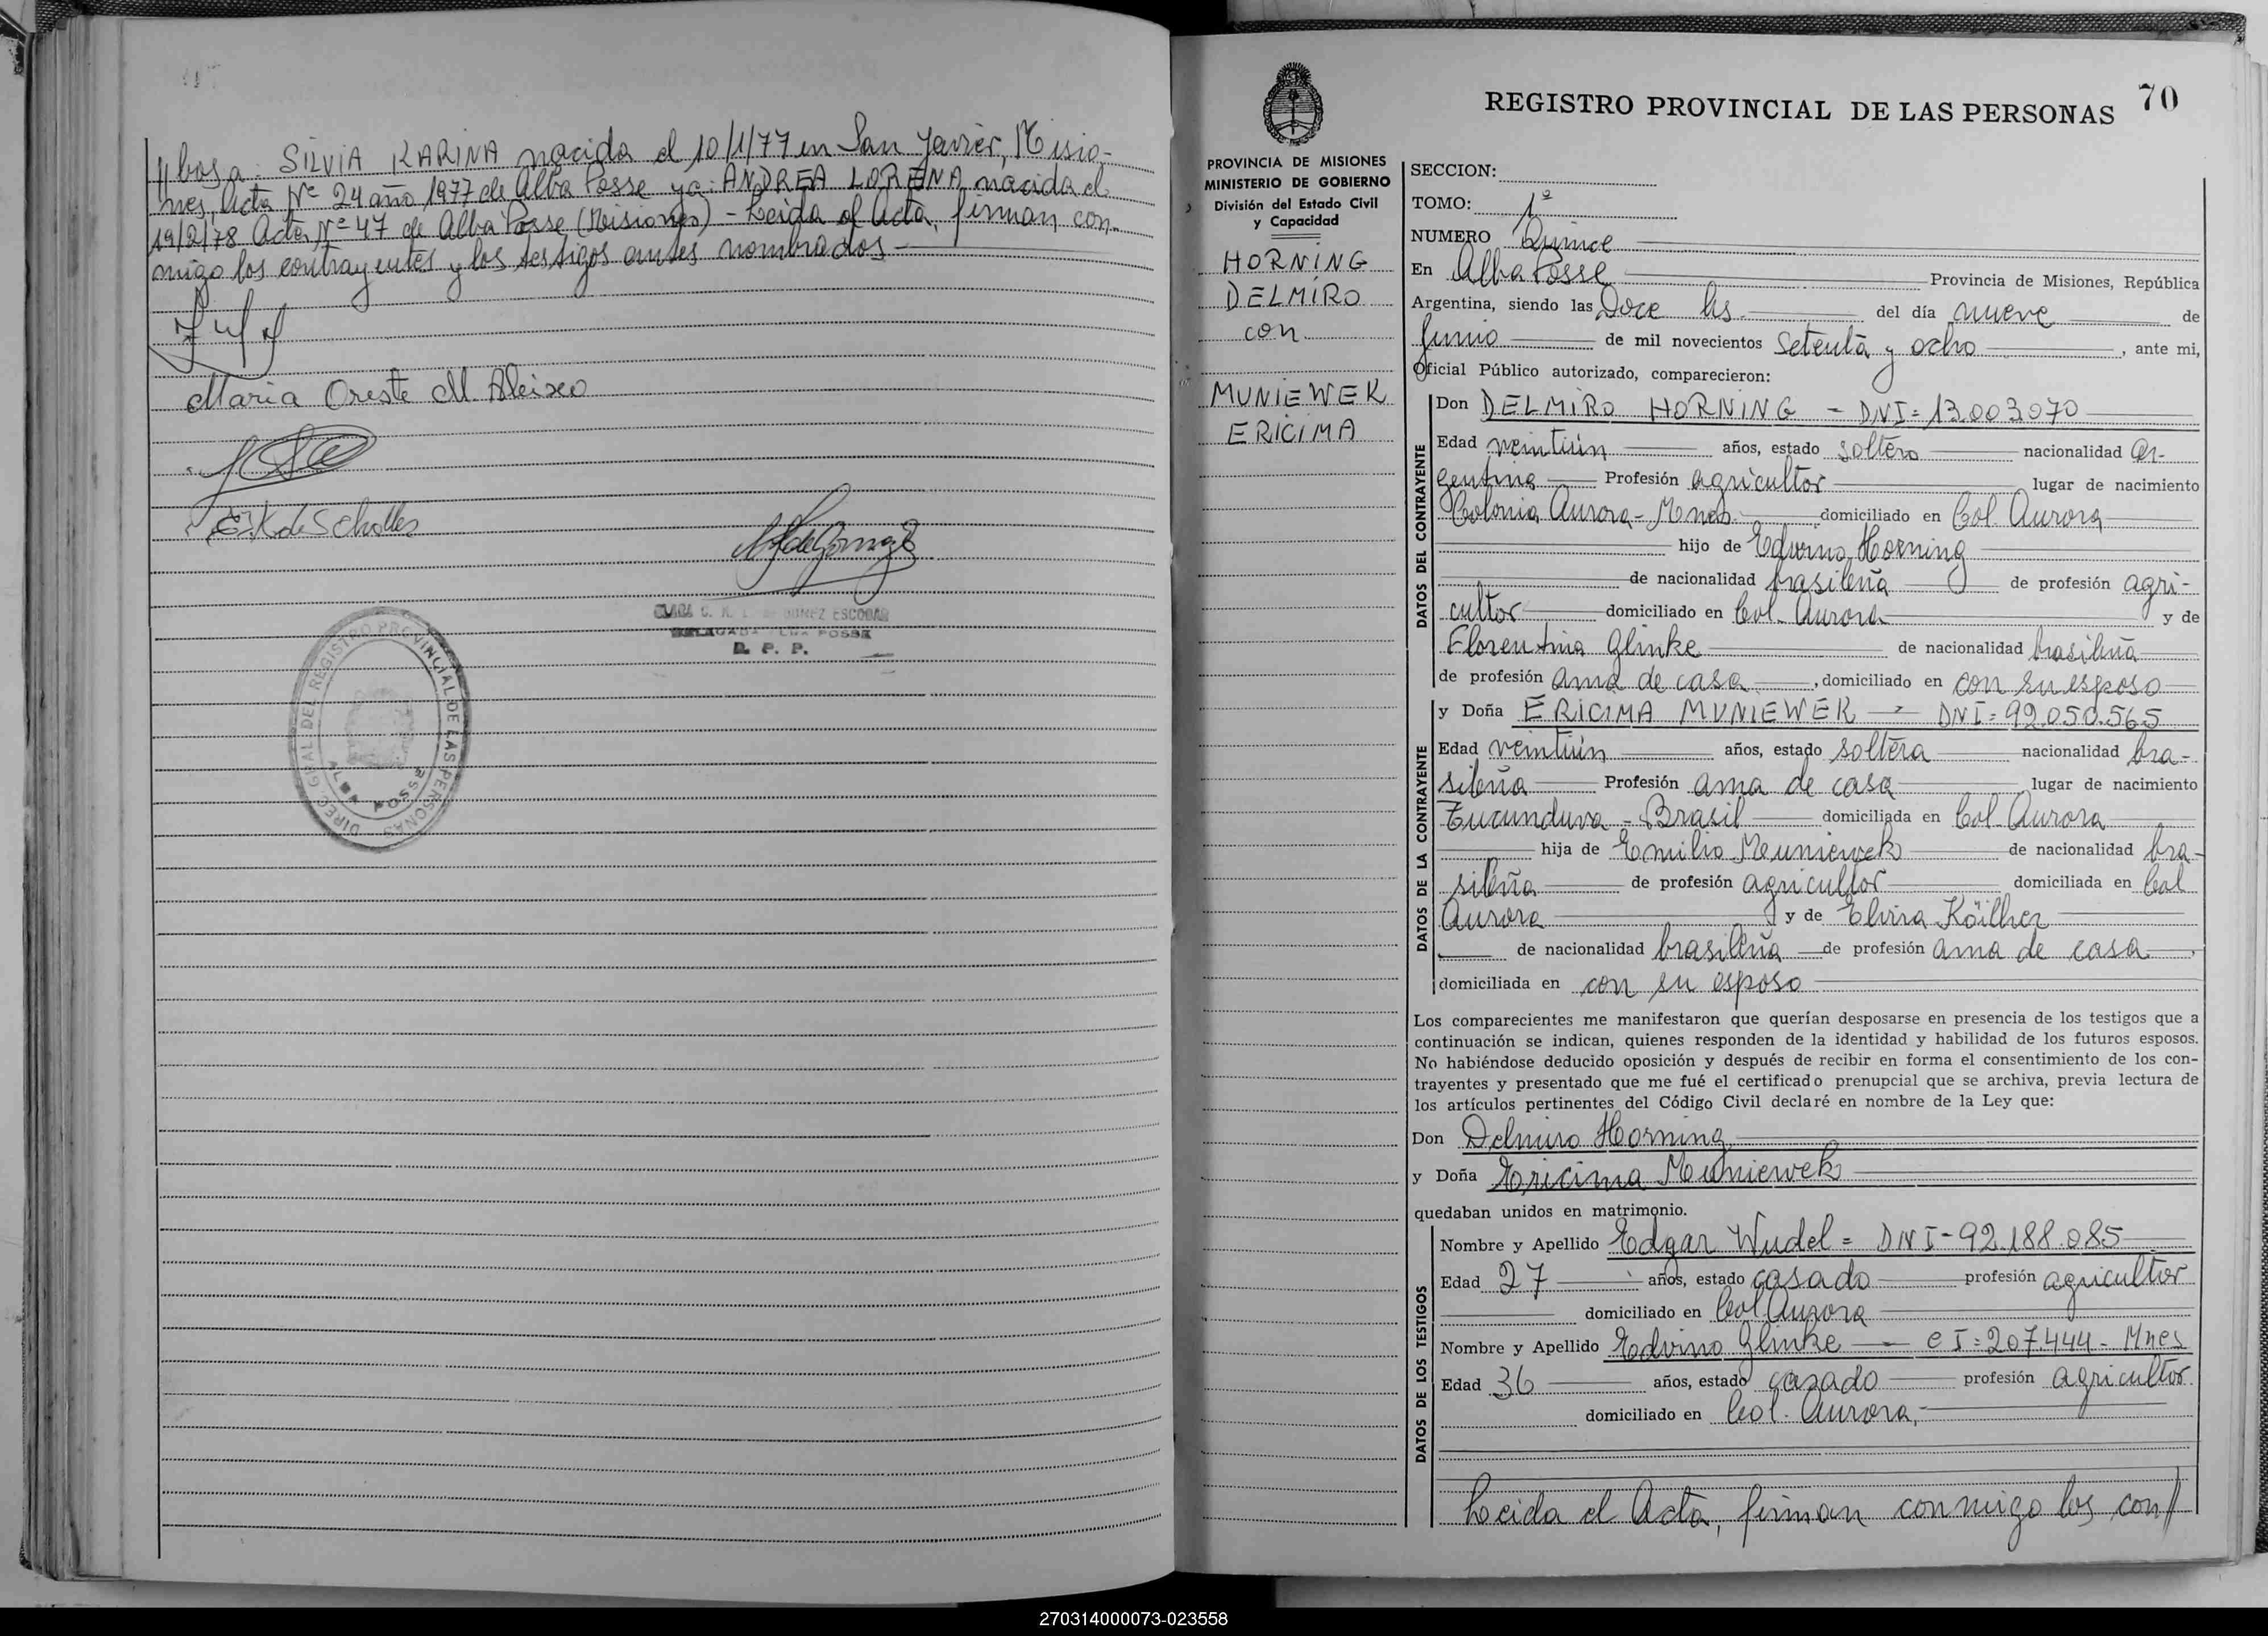 // bos a: SILVIA KARINA nacida el 10/1/77 en San Javier, Misio-
nes, Acta Nº 24 año 1977 de Alba Posse y a: ANDREA LORENA nacida el
19/2/78 Acta Nº 47 de Alba Posse (Misiones) - Leida el Acta, firman con-
migo los contrayentes y los testigos antes nombrados
Maria Oreste M. Aleixo
E. K de Scholles
DELEGADA ALBA POSSE
D. P. P.
DIREC. GRAL DEL REGISTRO PROVINCIAL DE LAS PERSONAS
ALBA POSSE
70
REGISTRO PROVINCIAL DE LAS PERSONAS
PROVINCIA DE MISIONES
MINISTERIO DE GOBIERNO
División del Estado Civil
y Capacidad
HORNING
DELMIRO
con
MUNIEWEK
ERICIMA
SECCION:
TOMO: 1º
NUMERO Quince
En Alba Posse Provincia de Misiones, República
Argentina, siendo las Doce hs. del día nueve de
Junio de mil novecientos Setenta y ocho, ante mi,
Oficial Público autorizado, comparecieron:
DATOS DEL CONTRAYENTE
Don DELMIRO HORNING - DNI = 13.003.070
Edad veintiún años, estado soltero nacionalidad ar-
gentina Profesión agricultor lugar de nacimiento
Colonia Aurora - Mnes. domiciliado en Col. Aurora
hijo de Edvino Horning
de nacionalidad brasileña de profesión agri-
cultor domiciliado en Col. Aurora y de
Florentina Glinke de nacionalidad brasileña
de profesión ama de casa, domiciliado en con su esposo
DATOS DE LA CONTRAYENTE
y Doña ERICIMA MUNIEWEK - DNI = 92.050.565
Edad veintiún años, estado soltera nacionalidad bra-
sileña Profesión ama de casa lugar de nacimiento
Tucunduva - Brasil domiciliada en Col. Aurora
hija de Emilio Muniewek de nacionalidad bra-
sileña de profesión agricultor domiciliada en Col
Aurora y de Elvira Köilher
de nacionalidad brasileña de profesión ama de casa
domiciliada en con su esposo
Los comparecientes me manifestaron que querían desposarse en presencia de los testigos que a
continuación se indican, quienes responden de la identidad y habilidad de los futuros esposos.
No habiéndose deducido oposición y después de recibir en forma el consentimiento de los con-
trayentes y presentado que me fué el certificado prenupcial que se archiva, previa lectura de
los artículos pertinentes del Código Civil declaré en nombre de la Ley que:
Don Delmiro Horning
y Doña Ericima Muniewek
quedaban unidos en matrimonio.
DATOS DE LOS TESTIGOS
Nombre y Apellido Edgar Wudel = DNI - 92.188.085
Edad 27 años, estado casado profesión agricultor
domiciliado en Col. Aurora
Nombre y Apellido Edvino Glinke - CI = 207.444 - Mnes
Edad 36 años, estado casado profesión agricultor
domiciliado en Col. Aurora,
Leida el Acta, firman conmigo los con//
270314000073-023558